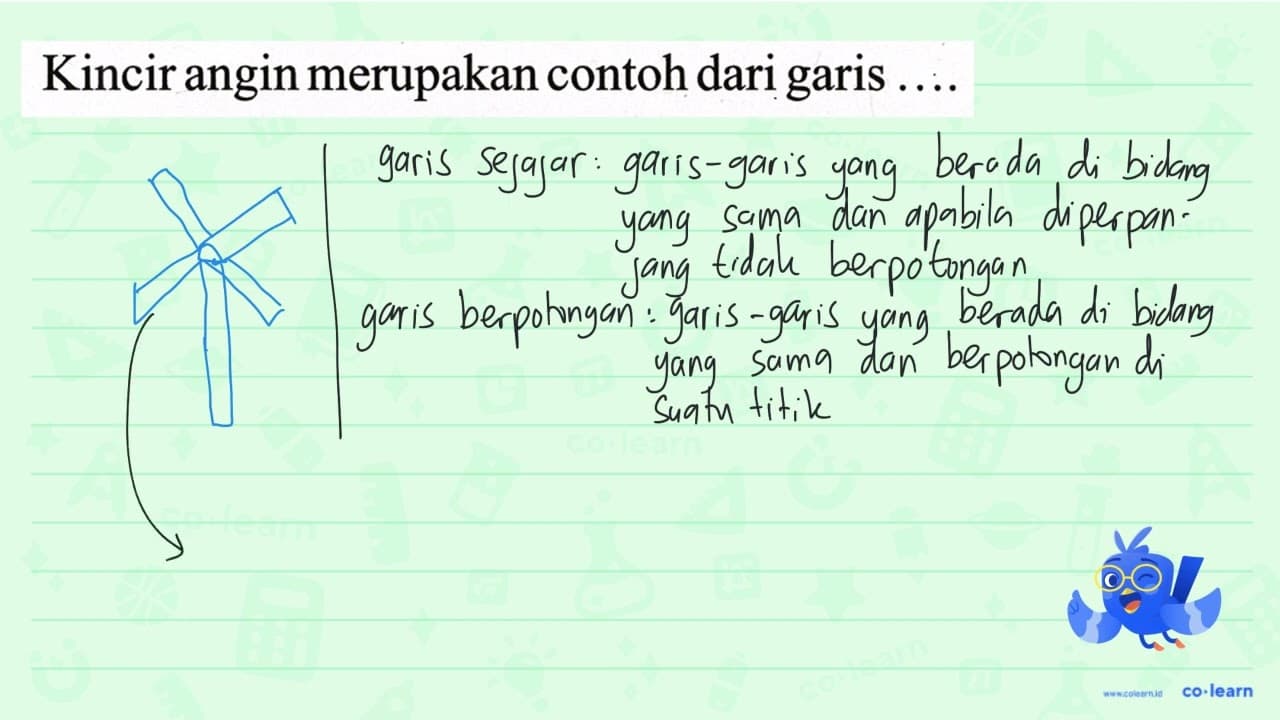 Kincir angin merupakan contoh dari garis ....
garis sejajar : garis-garis yang berada di bidang
yang sama dan apabila diperpan-
jang tidak berpotongan
garis berpotongan : garis-garis yang berada di bidang
yang sama dan berpotongan di
suatu titik
co·learn
co·learn
co·learn
www.colearn.id co·learn